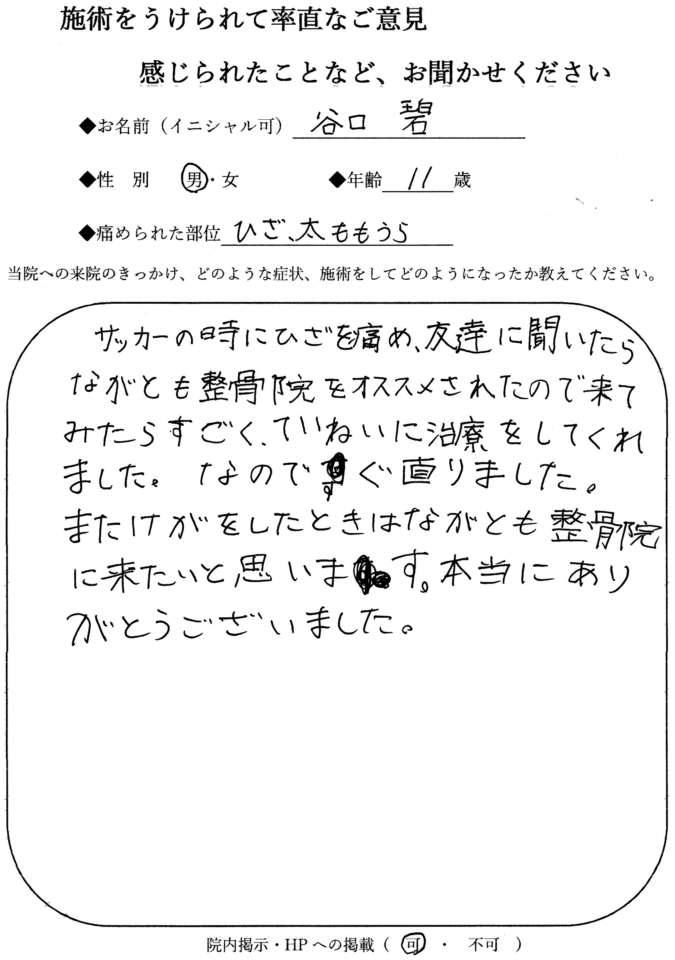 施術をうけられて率直なご意見
感じられたことなど、お聞かせください
◆お名前（イニシャル可）谷口 碧
◆性 別 男・女 ◆年齢 11 歳
◆痛められた部位 ひざ、太ももうら
当院への来院のきっかけ、どのような症状、施術をしてどのようになったか教えてください。
サッカーの時にひざを痛め、友達に聞いたら
ながとも整骨院をオススメされたので来て
みたらすごく、ていねいに治療をしてくれ
ました。なのですぐ直りました。
またけがをしたときはながとも整骨院
に来たいと思います。本当にあり
がとうございました。
院内掲示・HPへの掲載（ 可 ・ 不可 ）